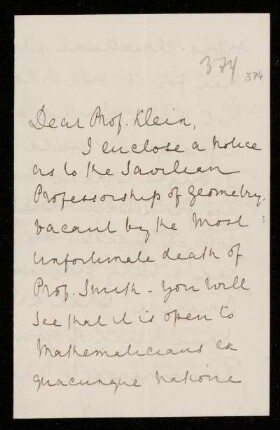 374
374
Dear Prof. Klein,
I enclose a notice
as to the Savilian
Professorship of Geometry,
vacant by the most
unfortunate death of
Prof. Smith - You will
see that it is open to
Mathematicians ex
quacunque natione